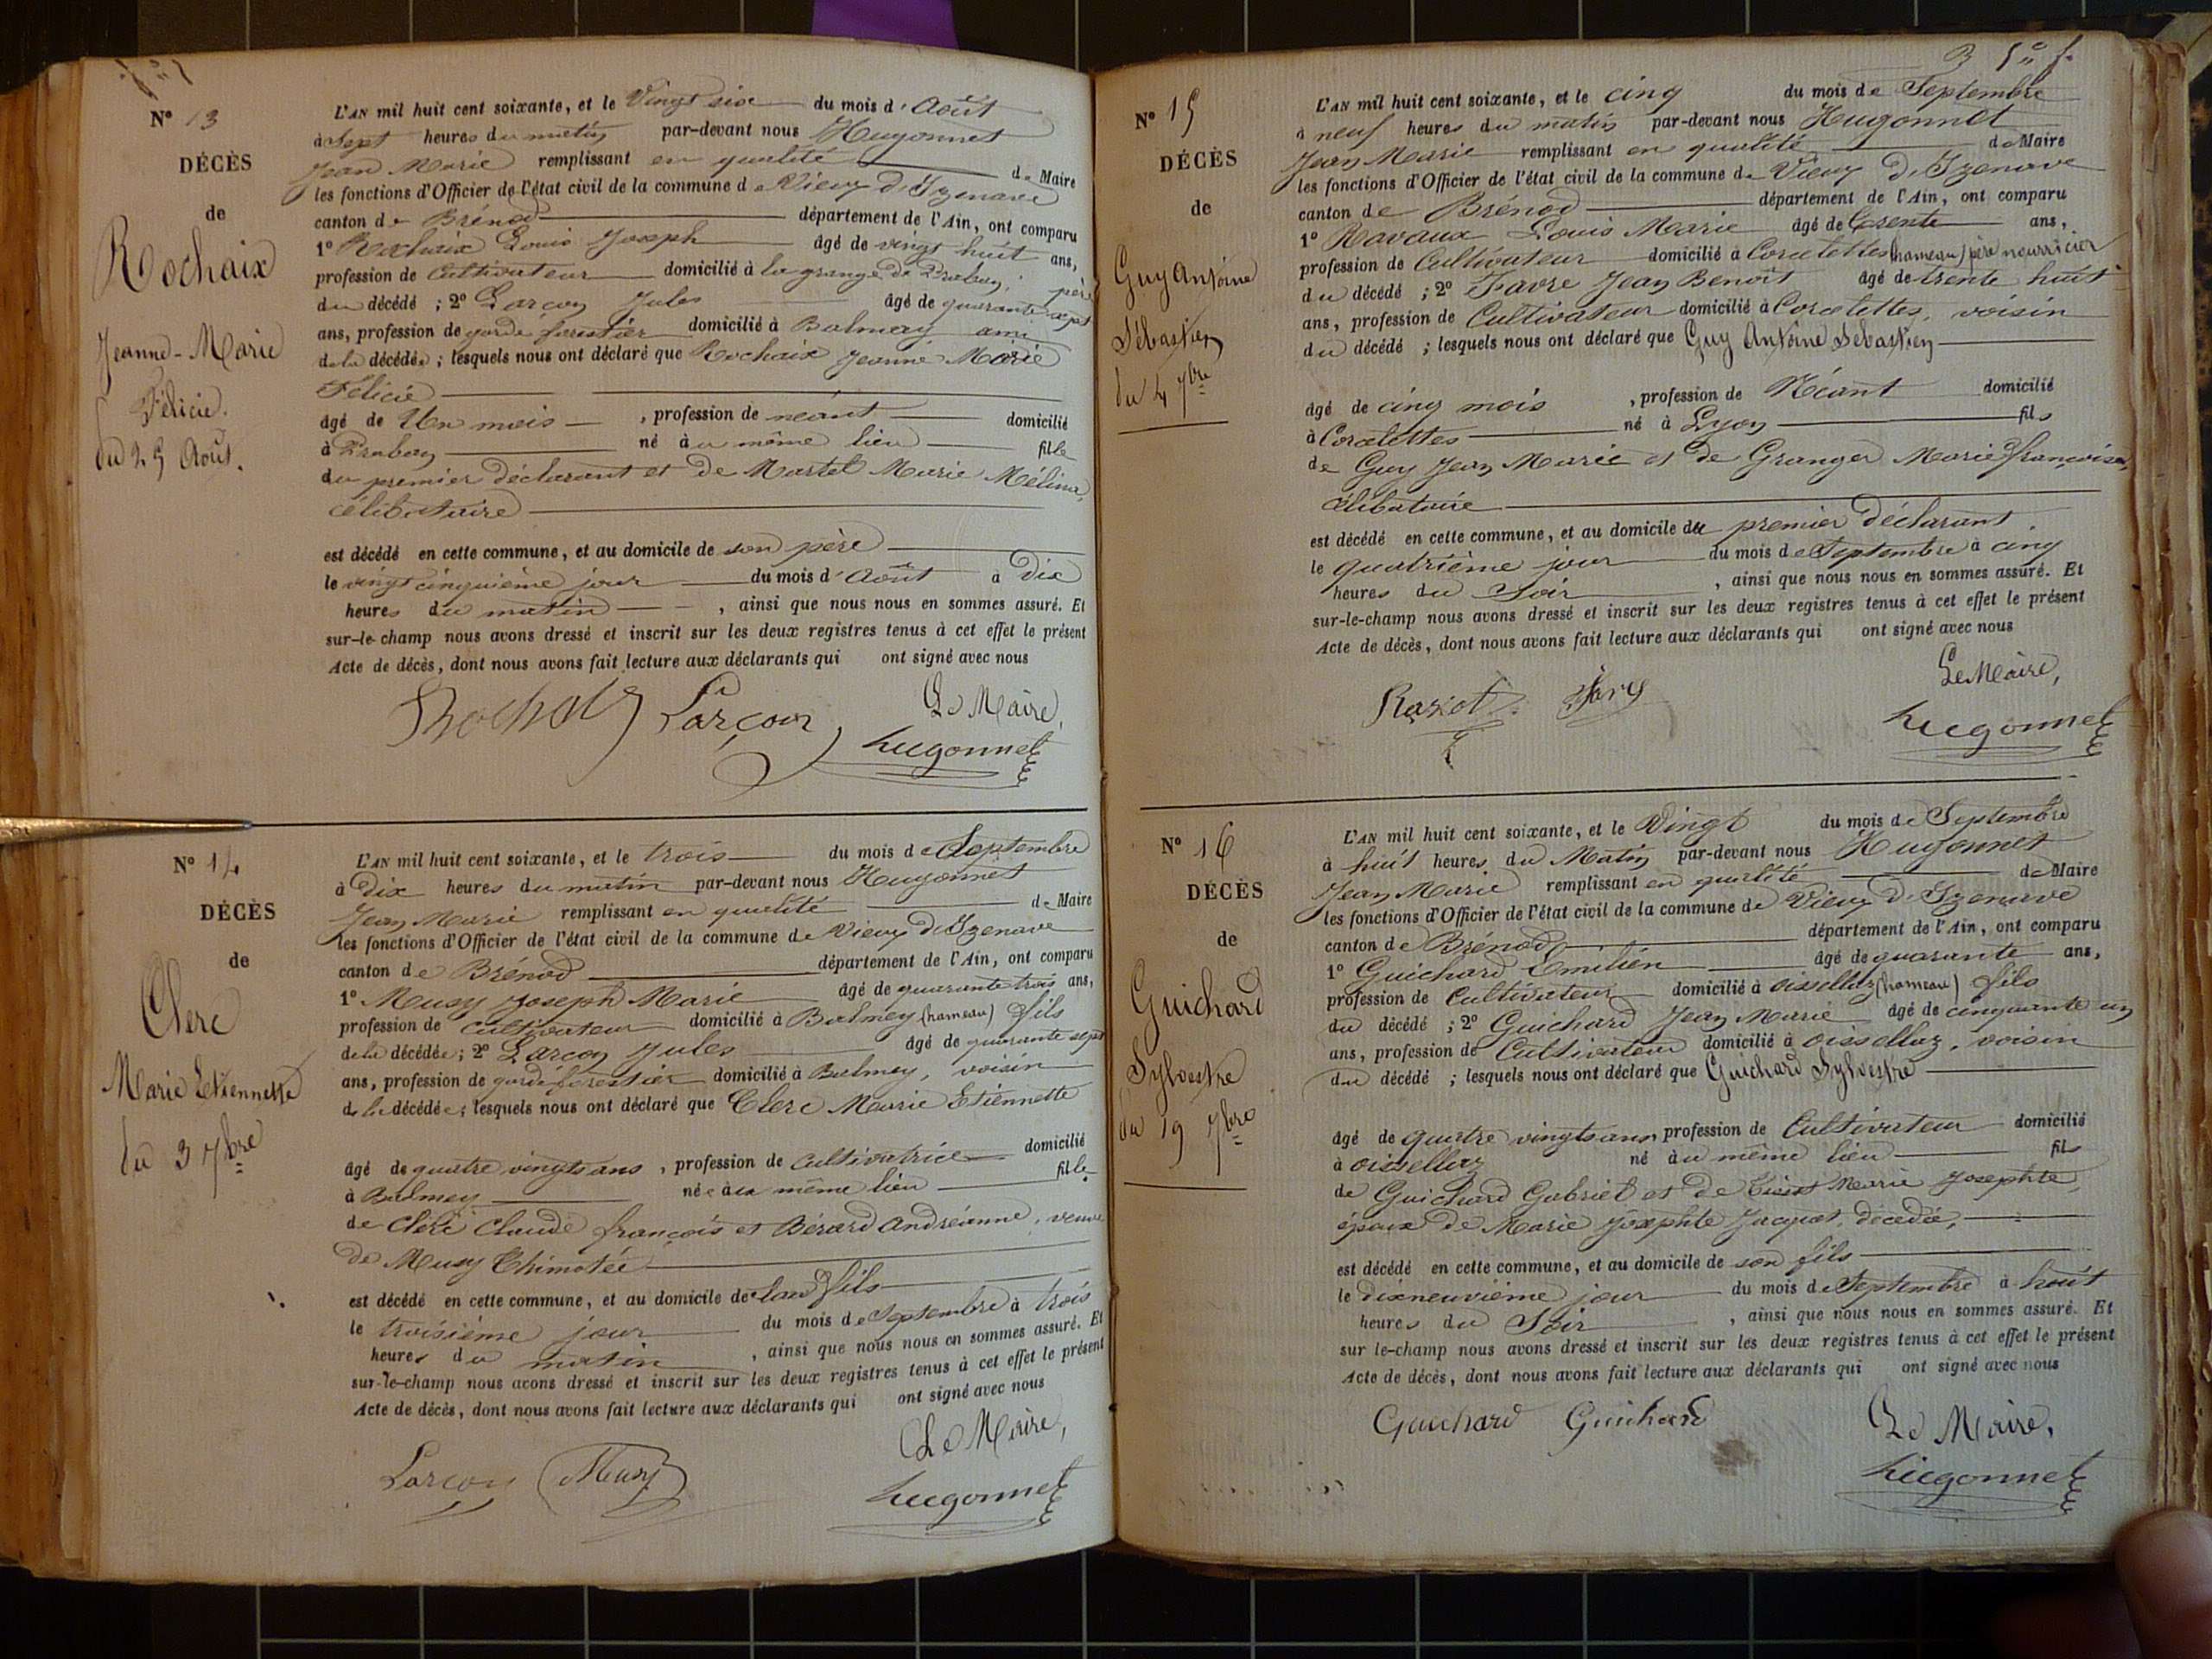 N° 13
DÉCÈS
de
Rochaix
Jeanne-Marie
Félicie.
du 25 Août.
L'AN mil huit cent soixante, et le Vingt six du mois d'Août
à Sept heures du matin par-devant nous Hugonnet
Jean Marie remplissant en qualité de Maire
les fonctions d'Officier de l'état civil de la commune de Vieux d'Izenave
canton de Brénod département de l'Ain, ont comparu
1° Rochaix Louis Joseph âgé de vingt huit ans,
profession de Cultivateur domicilié à la grange de Praban, père
du décédé ; 2° Larçon Jules âgé de quarante sept
ans, profession de garde forestier domicilié à Balmay ami
de la décédée ; lesquels nous ont déclaré que Rochaix Jeanne Marie
Félicie
âgé de Un mois , profession de néant domicilié
à Praban né au même lieu fille
du premier déclarant et de Martel Marie Mélina,
célibataire
est décédé en cette commune, et au domicile de son père
le vingt cinquième jour du mois d'Août à Dix
heures du matin , ainsi que nous nous en sommes assuré. Et
sur-le-champ nous avons dressé et inscrit sur les deux registres tenus à cet effet le présent
Acte de décès, dont nous avons fait lecture aux déclarants qui ont signé avec nous
Larçon Le Maire,
hugonnet
N° 14
DÉCÈS
de
Clerc
Marie Etiennette
du 3 7bre
L'AN mil huit cent soixante, et le trois du mois de Septembre
à Dix heures du matin par-devant nous Hugonnet
Jean Marie remplissant en qualité de Maire
les fonctions d'Officier de l'état civil de la commune de Vieux d'Izenave
canton de Brénod département de l'Ain, ont comparu
1° Musy Joseph Marie âgé de quarante trois ans,
profession de cultivateur domicilié à Balmey (hameau) fils
de la décédée ; 2° Larçon Jules âgé de quarante sept
ans, profession de garde forestier domicilié à Balmey, voisin
de la décédée ; lesquels nous ont déclaré que Clerc Marie Etiennette
âgé de quatre vingts ans , profession de cultivatrice domicilié
à Balmey née au même lieu fille
de Clerc Claude françois et Bérard Andréanne, veuve
de Musy Thimotée
est décédé en cette commune, et au domicile de son fils
le troisième jour du mois de Septembre à trois
heures du matin , ainsi que nous nous en sommes assuré. Et
sur-le-champ nous avons dressé et inscrit sur les deux registres tenus à cet effet le présent
Acte de décès, dont nous avons fait lecture aux déclarants qui ont signé avec nous
Larçon Musy Le Maire,
hugonnet
N° 15
DÉCÈS
de
Guy Antoine
Sébastien
du 4 7bre
L'AN mil huit cent soixante, et le cinq du mois de Septembre
à neuf heures du matin par-devant nous Hugonnet
Jean Marie remplissant en qualité de Maire
les fonctions d'Officier de l'état civil de la commune de Vieux d'Izenave
canton de Brénod département de l'Ain, ont comparu
1° Ravaux Louis Marie âgé de trente ans,
profession de Cultivateur domicilié à Corcelettes (hameau) père nourricier
du décédé ; 2° Favre Jean Benoit âgé de trente huit
ans, profession de Cultivateur domicilié à Corcelettes, voisin
du décédé ; lesquels nous ont déclaré que Guy Antoine Sébastien
âgé de cinq mois , profession de Néant domicilié
à Corcelettes né à Lyon fils
de Guy Jean Marie et de Granger Marie françoise,
célibataire
est décédé en cette commune, et au domicile du premier déclarant
le quatrième jour du mois de Septembre à cinq
heures du Soir , ainsi que nous nous en sommes assuré. Et
sur-le-champ nous avons dressé et inscrit sur les deux registres tenus à cet effet le présent
Acte de décès, dont nous avons fait lecture aux déclarants qui ont signé avec nous
Le Maire,
hugonnet
N° 16
DÉCÈS
de
Guichard
Sylvestre
du 19 7bre
L'AN mil huit cent soixante, et le Vingt du mois de Septembre
à huit heures du Matin par-devant nous Hugonnet
Jean Marie remplissant en qualité de Maire
les fonctions d'Officier de l'état civil de la commune de Vieux d'Izenave
canton de Brénod département de l'Ain, ont comparu
1° Guichard Emilien âgé de quarante ans,
profession de Cultivateur domicilié à oissellaz (hameau) fils
du décédé ; 2° Guichard Jean Marie âgé de cinquante un
ans, profession de Cultivateur domicilié à oissellaz, voisin
du décédé ; lesquels nous ont déclaré que Guichard Sylvestre
âgé de quatre vingts ans profession de Cultivateur domicilié
à oissellaz né au même lieu fils
de Guichard Gabriel et de Marie Josephte,
époux de Marie Josephte Jacquet, décédée,
est décédé en cette commune, et au domicile de son fils
le dixneuvième jour du mois de Septembre à huit
heures du Soir , ainsi que nous nous en sommes assuré. Et
sur le-champ nous avons dressé et inscrit sur les deux registres tenus à cet effet le présent
Acte de décès, dont nous avons fait lecture aux déclarants qui ont signé avec nous
Guichard Guichard Le Maire,
hugonnet